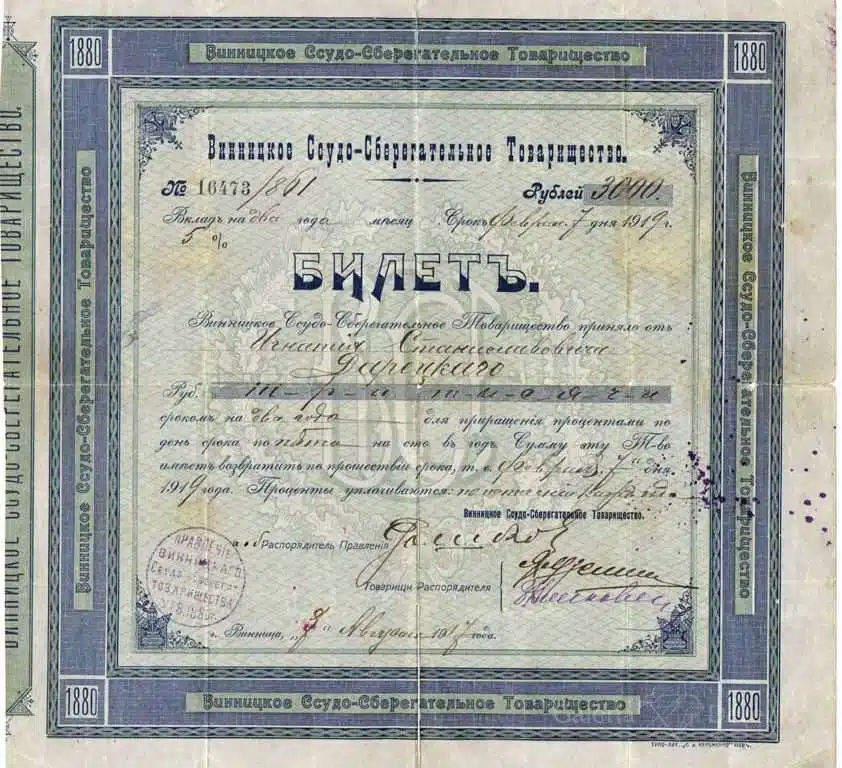 1880 Винницкое Ссудо-Сберегательное Товарищество 1880
ВИННИЦКОЕ ССУДО-СБЕРЕГАТЕЛЬНОЕ ТОВАРИЩЕСТВО.
Винницкое Ссудо-Сберегательное Товарищество
Винницкое Ссудо-Сберегательное Товарищество.
№ 16473/1861 Рублей 3000.
Вкладъ на два года мѣсяц. Срокъ 7 дня 1919 г.
5 %
БИЛЕТЪ.
Винницкое Ссудо-Сберегательное Товарищество приняло отъ
Игнатія Станиславовича
Руб. три тысячи
срокомъ на два года для приращенія процентами по
день срока по пяти на сто въ годъ. Сумму эту Т-во
имѣетъ возвратить по прошествіи срока, т. е. 7 дня
1919 года. Проценты уплачиваются:
Винницкое Ссудо-Сберегательное Товарищество.
Распорядитель Правленія
Товарищи Распорядителя
ПРАВЛЕНІЕ
ВИННИЦКАГО
ССУДО-СБЕРЕГАТ.
ТОВАРИЩЕСТВА
г. Винница, " 1917 года.
Винницкое Ссудо-Сберегательное Товарищество
1880 Винницкое Ссудо-Сберегательное Товарищество 1880